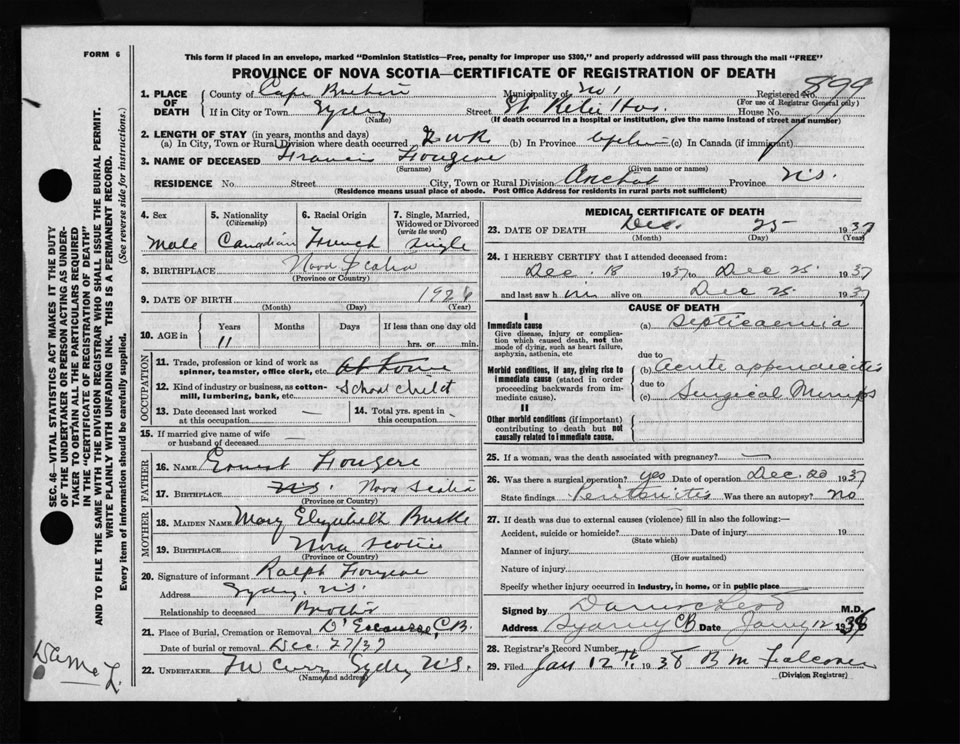 FORM 6
This form if placed in an envelope, marked "Dominion Statistics—Free, penalty for improper use $300," and properly addressed will pass through the mail "FREE"
PROVINCE OF NOVA SCOTIA—CERTIFICATE OF REGISTRATION OF DEATH
899
1. PLACE OF DEATH
County of Cape Breton Municipality of Registered No.
(For use of Registrar General only)
If in City or Town Sydney Street St Hos. House No.
(Name) (If death occurred in a hospital or institution, give the name instead of street and number)
2. LENGTH OF STAY (in years, months and days)
(a) In City, Town or Rural Division where death occurred 2 wk (b) In Province (c) In Canada (if immigrant)
3. NAME OF DECEASED Francis Fougere
(Surname) (Given name or names)
RESIDENCE No. Street City, Town or Rural Division Arichat Province N.S.
(Residence means usual place of abode. Post Office Address for residents in rural parts not sufficient)
4. Sex Male
5. Nationality (Citizenship) Canadian
6. Racial Origin French
7. Single, Married, Widowed or Divorced (write the word) Single
8. BIRTHPLACE Nova Scotia
(Province or Country)
9. DATE OF BIRTH 1926
(Month) (Day) (Year)
10. AGE in Years Months Days If less than one day old
11 hrs. or min.
OCCUPATION
11. Trade, profession or kind of work as spinner, teamster, office clerk, etc. At home
12. Kind of industry or business, as cotton-mill, lumbering, bank, etc. School child
13. Date deceased last worked at this occupation —
14. Total yrs. spent in this occupation —
15. If married give name of wife or husband of deceased —
FATHER
16. NAME Ernest Fougere
17. BIRTHPLACE N.S. Nova Scotia
(Province or Country)
MOTHER
18. MAIDEN NAME Mary Elizabeth Burke
19. BIRTHPLACE Nova Scotia
(Province or Country)
20. Signature of informant Ralph Fougere
Address Sydney, N.S.
Relationship to deceased Brother
21. Place of Burial, Cremation or Removal D'Escousse, C.B.
Date of burial or removal Dec. 27/37
22. UNDERTAKER Curry Sydney N.S.
(Name and address)
MEDICAL CERTIFICATE OF DEATH
23. DATE OF DEATH Dec. 25 1937
(Month) (Day) (Year)
24. I HEREBY CERTIFY that I attended deceased from:
Dec. 18 1937 to Dec 25. 1937
and last saw h im alive on Dec 25. 1937
CAUSE OF DEATH
I
Immediate cause
Give disease, injury or complication which caused death, not the mode of dying, such as heart failure, asphyxia, asthenia, etc
(a) Septicaemia
due to
Morbid conditions, if any, giving rise to immediate cause (stated in order proceeding backwards from immediate cause).
(b) Acute appendicitis
due to
(c) Surgical Mumps
II
Other morbid conditions (if important) contributing to death but not causally related to immediate cause.
25. If a woman, was the death associated with pregnancy? —
26. Was there a surgical operation? yes Date of operation Dec 20 1937
State findings Peritonitis Was there an autopsy? no
27. If death was due to external causes (violence) fill in also the following:—
Accident, suicide or homicide? Date of injury 19
(State which)
Manner of injury
(How sustained)
Nature of injury
Specify whether injury occurred in industry, in home, or in public place
Signed by M.D.
Address Sydney CB Date Jany 12 1938
28. Registrar's Record Number
29. Filed Jan 12th 1938 B M Falconer
(Division Registrar)
SEC. 46—VITAL STATISTICS ACT MAKES IT THE DUTY
OF THE UNDERTAKER OR PERSON ACTING AS UNDER-
TAKER TO OBTAIN ALL THE PARTICULARS REQUIRED
IN THE "CERTIFICATE OF REGISTRATION OF DEATH"
AND TO FILE THE SAME WITH THE DIVISION REGISTRAR WHO SHALL ISSUE THE BURIAL PERMIT.
WRITE PLAINLY WITH UNFADING INK. THIS IS A PERMANENT RECORD.
Every item of information should be carefully supplied. (See reverse side for instructions.)